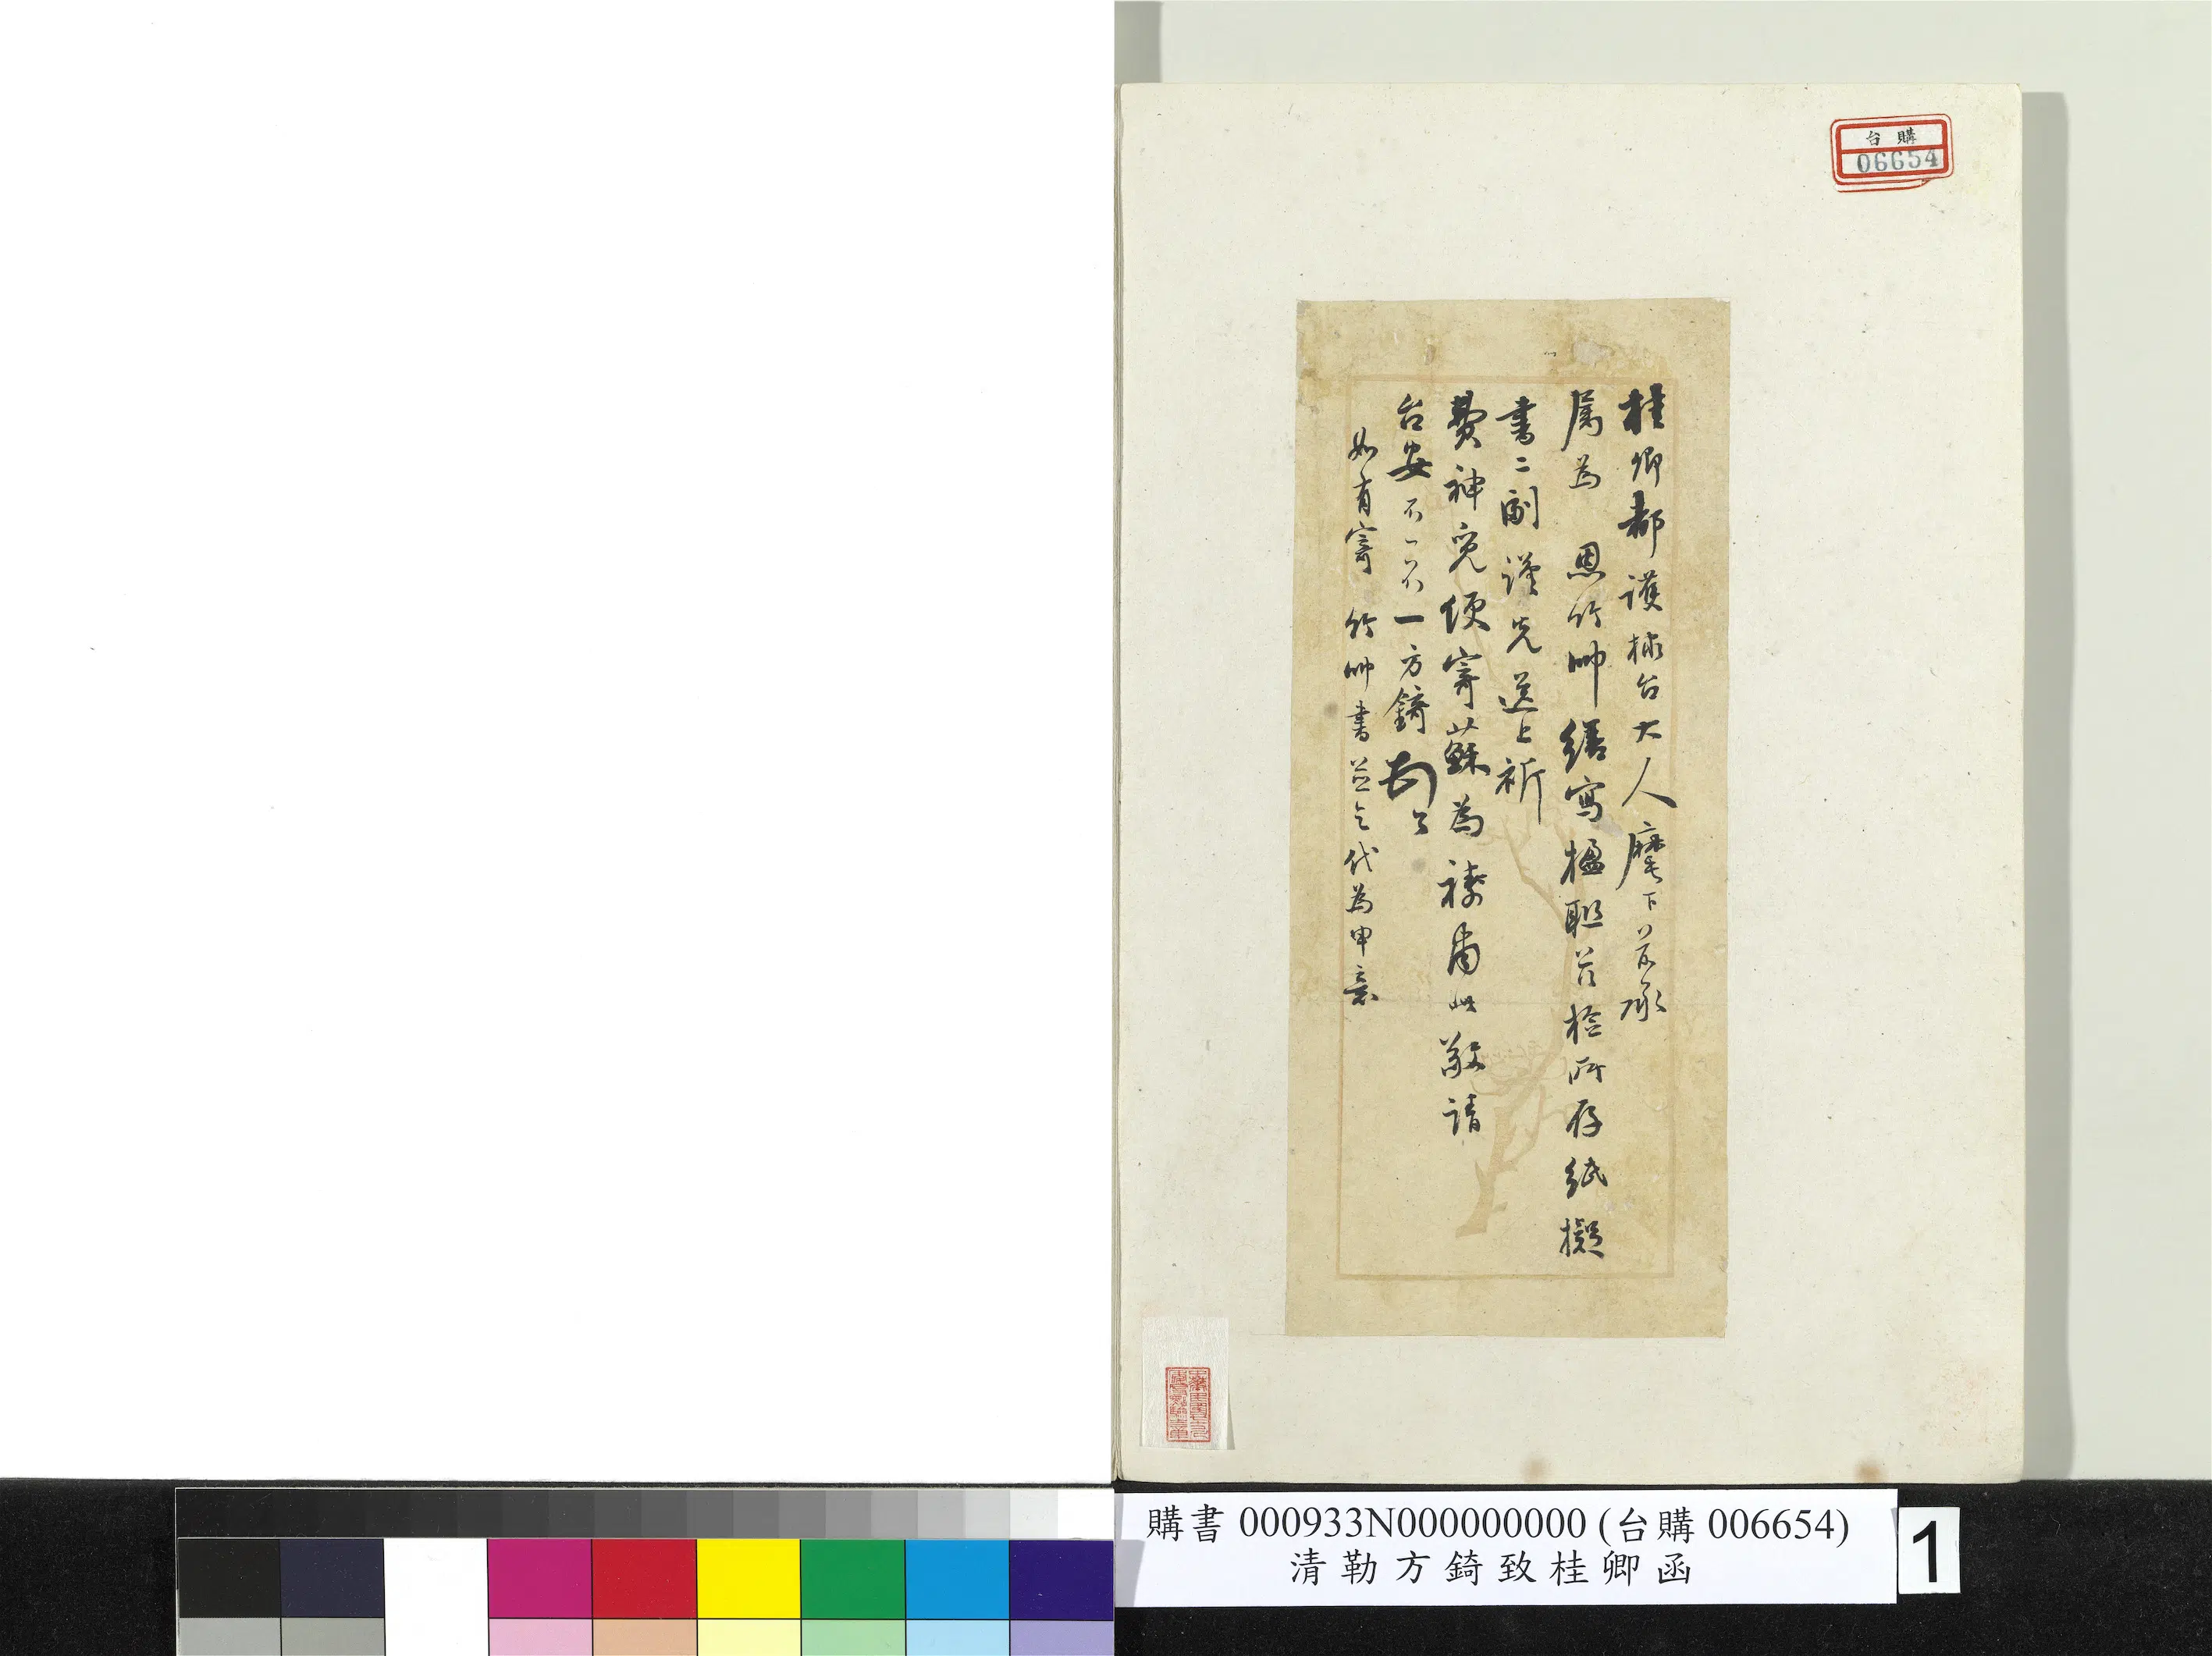 台購
06654
桂卿都護榇台大人麾下前承
属為 恩竹帅繕寫楹聯茲檢所存紙擬
書二副謹先送上祈
費神覓便寄蘇為禱肅此敬請
台安不一不一方錡頓首
如有寄 竹帅書並乞代為申意
購書 000933N000000000 (台購 006654)
清勒方錡致桂卿函
1